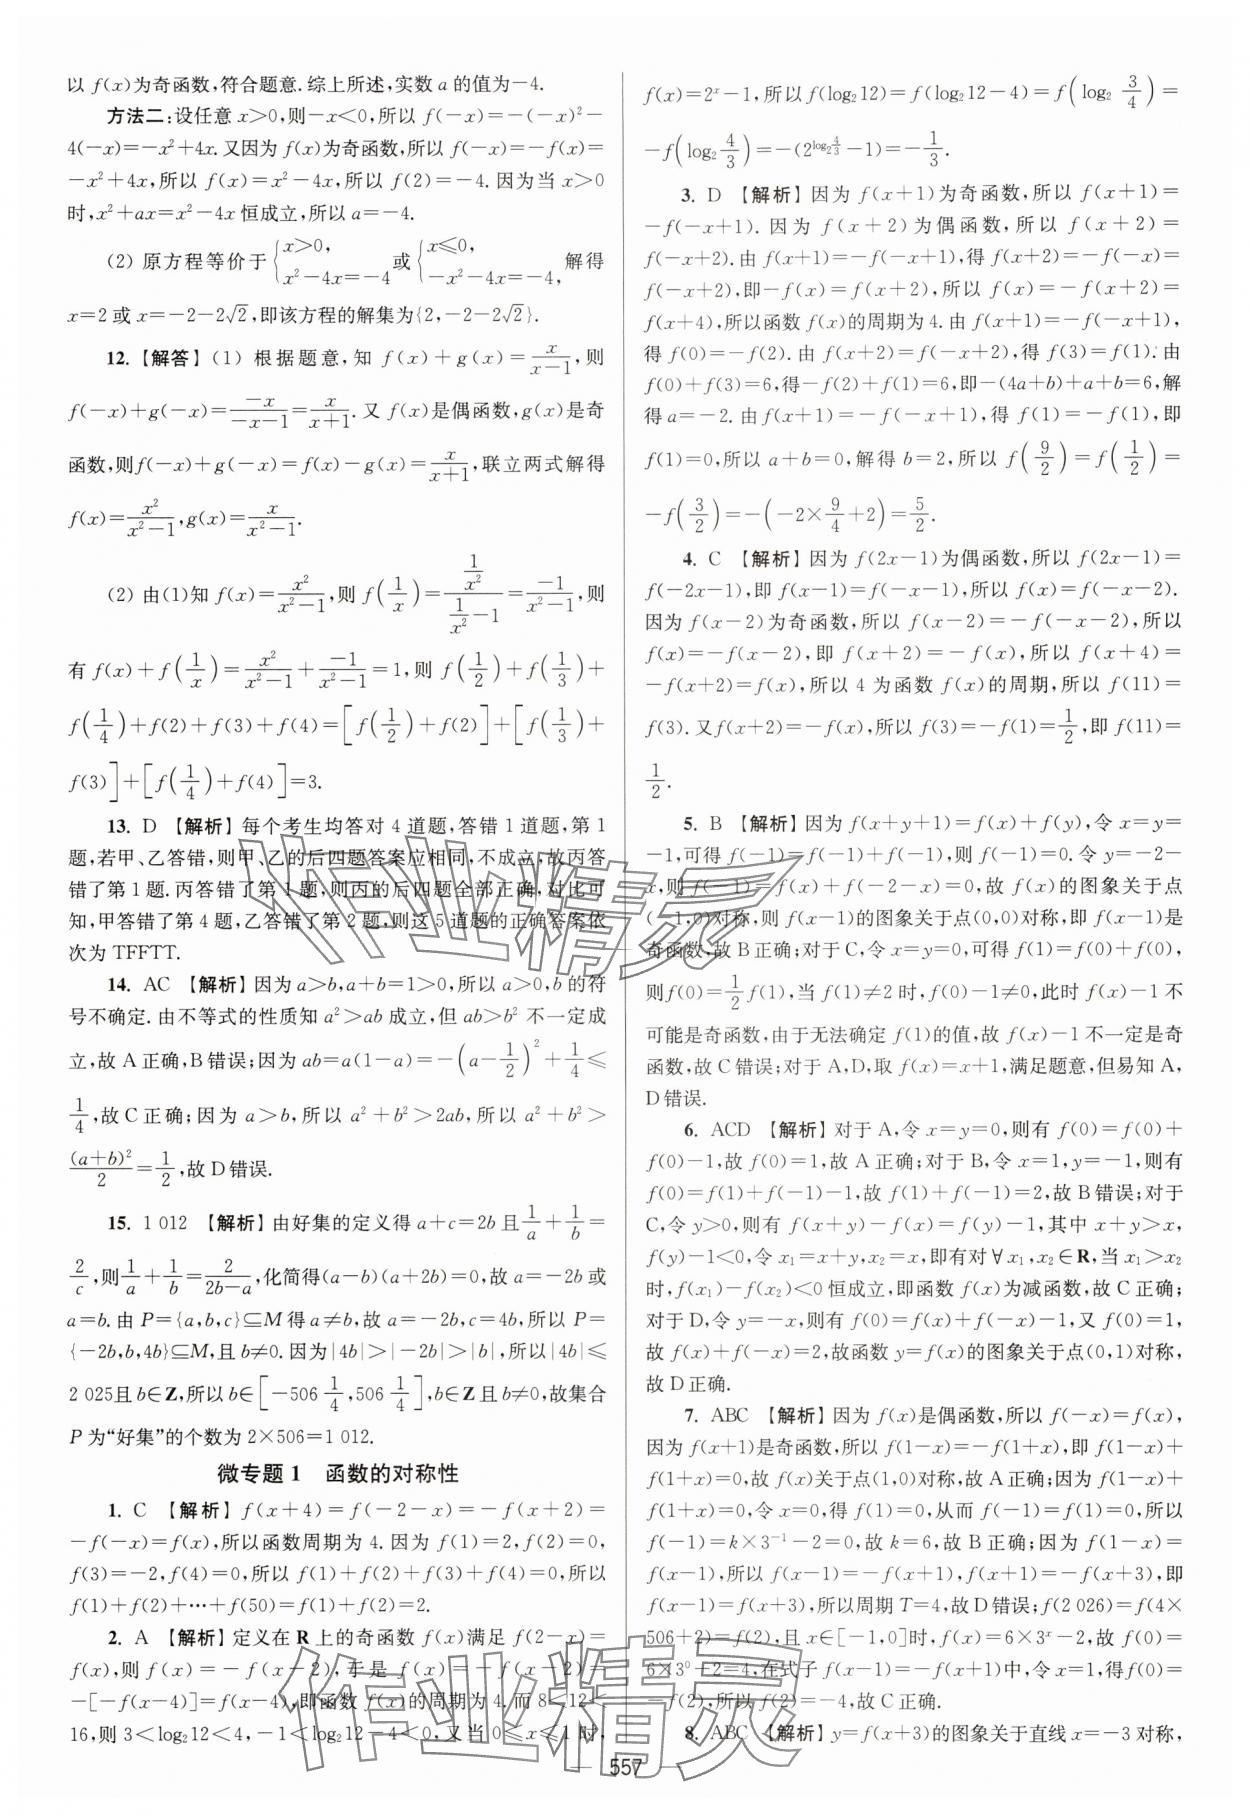 以 f(x)为奇函数,符合题意.综上所述,实数 a 的值为－4.
方法二:设任意 x>0,则－x<0,所以 f(－x)=－(－x)²－
4(－x)=－x²+4x.又因为 f(x)为奇函数,所以 f(－x)=－f(x)=
－x²+4x,所以 f(x)=x²－4x,所以 f(2)=－4.因为当 x>0
时,x²+ax=x²－4x 恒成立,所以 a=－4.
(2) 原方程等价于{x>0, x²－4x=－4 或{x≤0, －x²－4x=－4, 解得
x=2 或 x=－2－2√2,即该方程的解集为{2,－2－2√2}.
12.【解答】(1) 根据题意,知 f(x)+g(x)=x/(x－1),则
f(－x)+g(－x)=－x/(－x－1)=x/(x+1).又 f(x)是偶函数,g(x)是奇
函数,则f(－x)+g(－x)=f(x)－g(x)=x/(x+1),联立两式解得
f(x)=x²/(x²－1),g(x)=x/(x²－1).
(2) 由(1)知 f(x)=x²/(x²－1),则 f(1/x)=(1/x²)/(1/x²－1)=－1/(x²－1),则
有 f(x)+f(1/x)=x²/(x²－1)+－1/(x²－1)=1,则 f(1/2)+f(1/3)+
f(1/4)+f(2)+f(3)+f(4)=[f(1/2)+f(2)]+[f(1/3)+
f(3)]+[f(1/4)+f(4)]=3.
13. D 【解析】每个考生均答对 4 道题,答错 1 道题,第 1
题,若甲、乙答错,则甲、乙的后四题答案应相同,不成立,故丙答
错了第 1 题.丙答错了第 1 题,则丙的后四题全部正确,对比可
知,甲答错了第 4 题,乙答错了第 2 题,则这 5 道题的正确答案依
次为 TFFTT.
14. AC 【解析】因为 a>b,a+b=1>0,所以 a>0,b 的符
号不确定.由不等式的性质知 a²>ab 成立,但 ab>b² 不一定成
立,故 A 正确,B 错误;因为 ab=a(1－a)=－(a－1/2)²+1/4≤
1/4,故 C 正确;因为 a>b,所以 a²+b²>2ab,所以 a²+b²>
(a+b)²/2=1/2,故 D 错误.
15. 1 012 【解析】由好集的定义得 a+c=2b 且1/a+1/b=
2/c,则1/a+1/b=2/(2b－a),化简得(a－b)(a+2b)=0,故 a=－2b 或
a=b.由 P={a,b,c}⊆M 得 a≠b,故 a=－2b,c=4b,所以 P=
{－2b,b,4b}⊆M,且 b≠0.因为|4b|>|－2b|>|b|,所以|4b|≤
2 025且 b∈Z,所以 b∈[－506 1/4,506 1/4],b∈Z 且 b≠0,故集合
P 为“好集”的个数为 2×506=1 012.
微专题 1 函数的对称性
1. C 【解析】f(x+4)=f(－2－x)=－f(x+2)=
－f(－x)=f(x),所以函数周期为 4.因为 f(1)=2,f(2)=0,
f(3)=－2,f(4)=0,所以 f(1)+f(2)+f(3)+f(4)=0,所以
f(1)+f(2)+…+f(50)=f(1)+f(2)=2.
2. A 【解析】定义在 R 上的奇函数 f(x)满足 f(2－x)=
f(x),则 f(x)=－f(x－2),于是 f(x)=－f(x－2)=
－[－f(x－4)]=f(x－4),即函数 f(x)的周期为 4.而 8<12<
16,则 3<log₂12<4,－1<log₂12－4<0,又当 0≤x≤1 时,
f(x)=2ˣ－1,所以 f(log₂12)=f(log₂12－4)=f(log₂ 3/4)=
－f(log₂ 4/3)=－(2^(log₂ 4/3)－1)=－1/3.
3. D 【解析】因为 f(x+1)为奇函数,所以 f(x+1)=
－f(－x+1).因为 f(x+2)为偶函数,所以 f(x+2)=
f(－x+2).由 f(x+1)=－f(－x+1),得 f(x+2)=－f(－x)=
f(－x+2),即－f(x)=f(x+2),所以 f(x)=－f(x+2)=
f(x+4),所以函数 f(x)的周期为 4.由 f(x+1)=－f(－x+1),
得 f(0)=－f(2).由 f(x+2)=f(－x+2),得 f(3)=f(1).由
f(0)+f(3)=6,得－f(2)+f(1)=6,即－(4a+b)+a+b=6,解
得 a=－2.由 f(x+1)=－f(－x+1),得 f(1)=－f(1),即
f(1)=0,所以 a+b=0,解得 b=2,所以 f(9/2)=f(1/2)=
－f(3/2)=－(－2×9/4+2)=5/2.
4. C 【解析】因为 f(2x－1)为偶函数,所以 f(2x－1)=
f(－2x－1),即 f(x－1)=f(－x－1),所以 f(x)=f(－x－2).
因为 f(x－2)为奇函数,所以 f(x－2)=－f(－x－2),所以
f(x)=－f(x－2),即 f(x+2)=－f(x),所以 f(x+4)=
－f(x+2)=f(x),所以 4 为函数 f(x)的周期,所以 f(11)=
f(3).又f(x+2)=－f(x),所以 f(3)=－f(1)=1/2,即 f(11)=
1/2.
5. B 【解析】因为 f(x+y+1)=f(x)+f(y),令 x=y=
－1,可得 f(－1)=f(－1)+f(－1),则 f(－1)=0.令 y=－2－
x,则 f(－1)=f(x)+f(－2－x)=0,故 f(x)的图象关于点
(－1,0)对称,则 f(x－1)的图象关于点(0,0)对称,即 f(x－1)是
奇函数,故 B 正确;对于 C,令 x=y=0,可得 f(1)=f(0)+f(0),
则f(0)=1/2 f(1),当 f(1)≠2 时,f(0)－1≠0,此时 f(x)－1 不
可能是奇函数,由于无法确定 f(1)的值,故 f(x)－1 不一定是奇
函数,故 C 错误;对于 A,D,取 f(x)=x+1,满足题意,但易知 A,
D 错误.
6. ACD 【解析】对于 A,令 x=y=0,则有 f(0)=f(0)+
f(0)－1,故 f(0)=1,故 A 正确;对于 B,令 x=1,y=－1,则有
f(0)=f(1)+f(－1)－1,故 f(1)+f(－1)=2,故 B 错误;对于
C,令 y>0,则有 f(x+y)－f(x)=f(y)－1,其中 x+y>x,
f(y)－1<0,令 x₁=x+y,x₂=x,即有对∀x₁,x₂∈R,当 x₁>x₂
时,f(x₁)－f(x₂)<0 恒成立,即函数 f(x)为减函数,故 C 正确;
对于 D,令 y=－x,则有 f(0)=f(x)+f(－x)－1,又 f(0)=1,
故 f(x)+f(－x)=2,故函数 y=f(x)的图象关于点(0,1)对称,
故 D 正确.
7. ABC 【解析】因为 f(x)是偶函数,所以 f(－x)=f(x),
因为 f(x+1)是奇函数,所以 f(1－x)=－f(1+x),即 f(1－x)+
f(1+x)=0,故 f(x)关于点(1,0)对称,故 A 正确;因为 f(1－x)+
f(1+x)=0,令 x=0,得 f(1)=0,从而 f(－1)=f(1)=0,所以
f(－1)=k×3⁻¹－2=0,故 k=6,故 B 正确;因为 f(1－x)=
f(x－1),所以 f(x－1)=－f(x+1),f(x+1)=－f(x+3),即
f(x－1)=f(x+3),所以周期 T=4,故 D 错误;f(2 026)=f(4×
506+2)=f(2),且 x∈[－1,0]时,f(x)=6×3ˣ－2,故 f(0)=
6×3⁰－2=4,在式子 f(x－1)=－f(x+1)中,令 x=1,得 f(0)=
－f(2),所以 f(2)=－4,故 C 正确.
8. ABC 【解析】y=f(x+3)的图象关于直线 x=－3 对称,
557
作业精灵
作业精灵